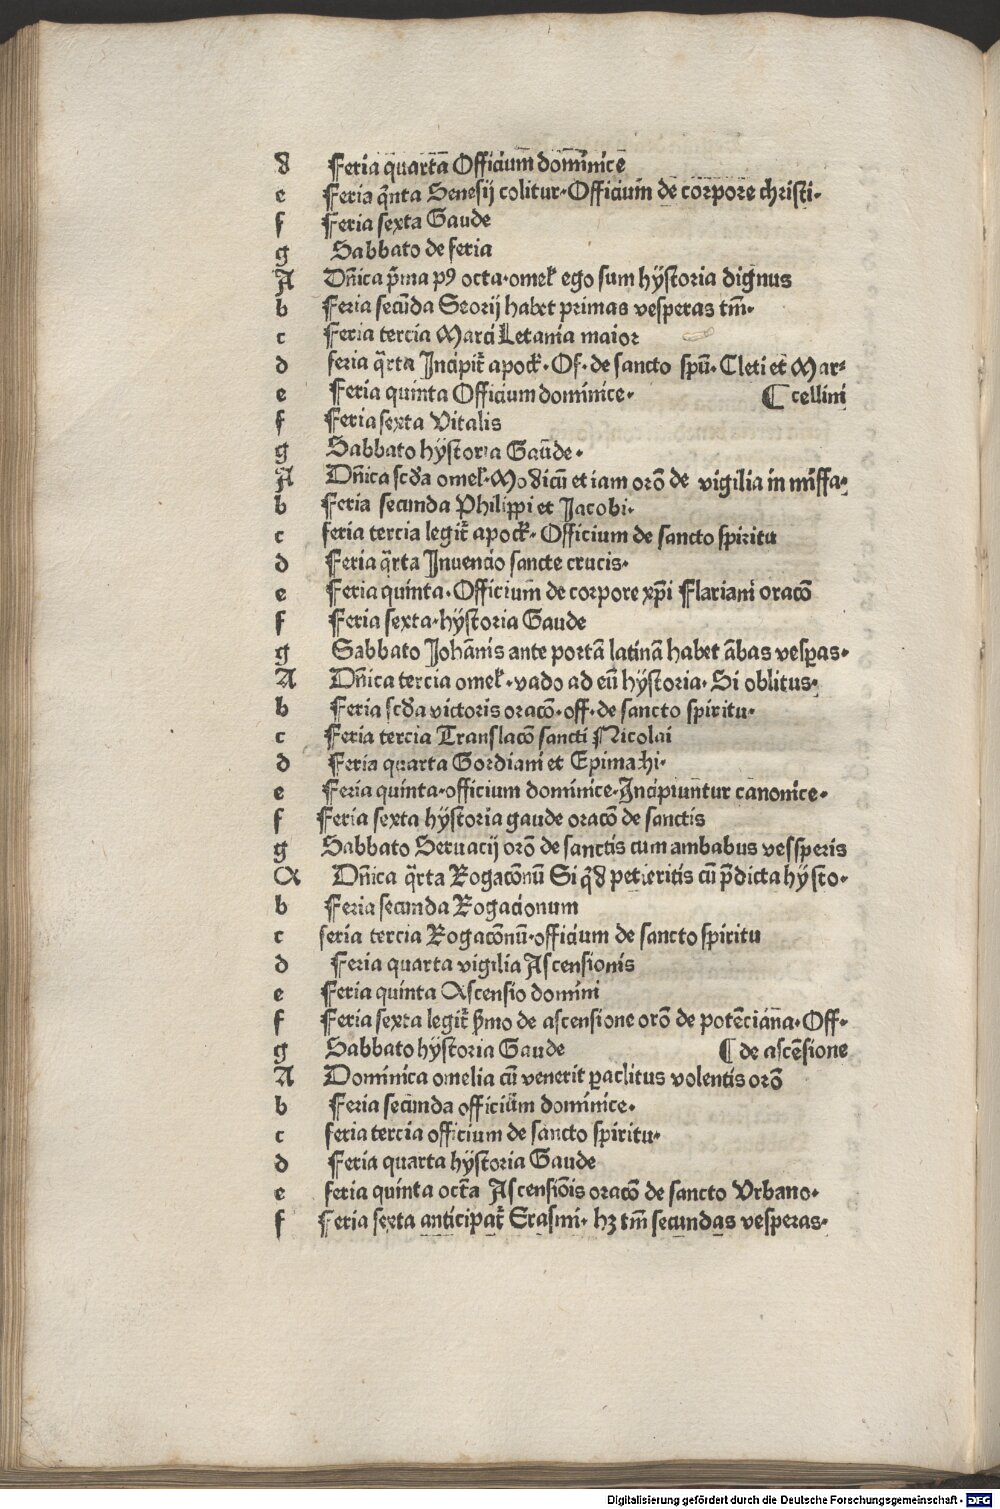 d Feria quarta Officium dominice
e Feria q̃nta Senesij colitur. Officium de corpore christi.
f Feria sexta Gaude
g Sabbato de feria
A Dñica p̃ma pꝰ octa. omeł ego sum hÿstoria dignus
b Feria secũda Georij habet primas vesperas tm̃.
c Feria tercia Marci Letania maior
d feria q̃rta Incipit̃ apocꝉ. Of. de sancto spũ. Cleti et Mar⸗
e Feria quinta Officium dominice. ¶ cellini
f Feria sexta Vitalis
g Sabbato hÿstoria Gaũde.
A Dñica scđa omeł. Modicũ et iam orõ de vigilia in missa.
b Feria secunda Philippi et Jacobi.
c feria tercia legit̃ apocꝉ. Officium de sancto spiritu
d Feria q̃rta Invencio sancte crucis.
e Feria quinta. Officium de corpore xp̃i Flariani oracõ
f Feria sexta. hÿstoria Gaude
g Sabbato Johãnis ante portã latinã habet ãbas vesꝑas.
A Dñica tercia omeł. vado ad eũ hÿstoria. Si oblitus.
b Feria scđa victoris oracõ. off. de sancto spiritu.
c Feria tercia Translacõ sancti Nicolai
d Feria quarta Gordiani et Epimachi.
e Feria quinta. officium dominice. Incipiunt̃ur canonice.
f Feria sexta hÿstoria gaude oracõ de sanctis
g Sabbato Servacij orõ de sanctis cum ambabus vessperis
A Dñica q̃rta Rogacõnũ Si q̃d petieritis cũ p̃dicta hÿsto.
b Feria secunda Rogacionum
c feria tercia Rogacõnũ. officium de sancto spiritu
d Feria quarta vigilia Ascensionis
e Feria quinta Ascensio domini
f Feria sexta legit̃ p̃mo de ascensione orõ de potẽcianna. Off.
g Sabbato hÿstoria Gaude ¶ de ascẽsione
A Dominica omelia cũ venerit ꝑaclitus volentis orõ
b Feria secunda officium dominice.
c feria tercia officium de sancto spiritu.
d Feria quarta hÿstoria Gaude
e feria quinta oct̃a Ascensiõis oracõ de sancto Urbano.
f Feria sexta anticipat̃ Erasmi. hꝫ tm̃ secundas vesperas.
Digitalisierung gefördert durch die Deutsche Forschungsgemeinschaft - DFG